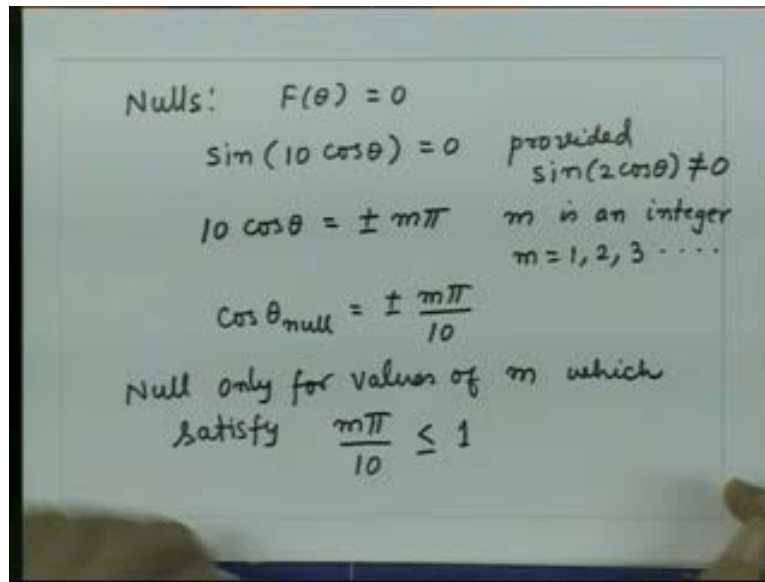 Nulls: F(θ) = 0
sin(10 cosθ) = 0 provided
sin(2cosθ) ≠ 0
10 cosθ = ± mπ m is an integer
m = 1, 2, 3 ····
cos θnull = ± mπ/10
Null only for values of m which
satisfy mπ/10 ≤ 1